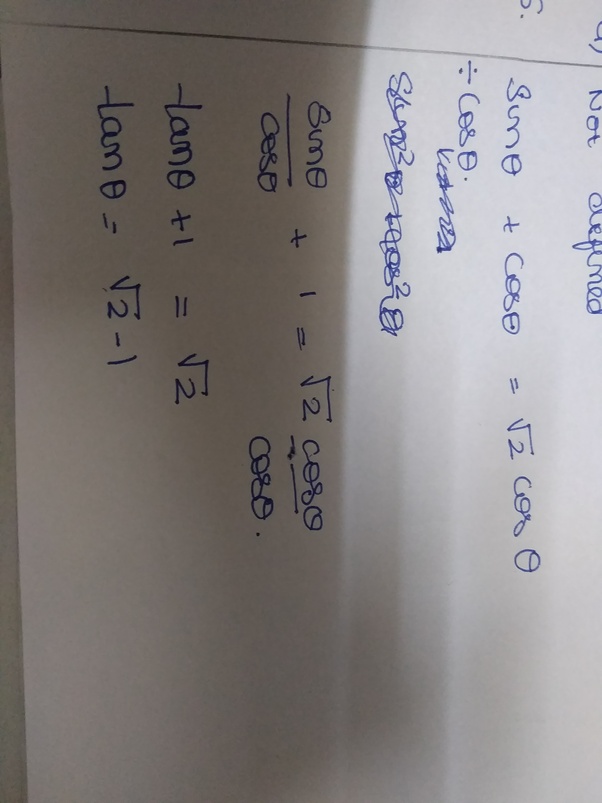 a) Not defined
5.
sinθ + cosθ = √2 cosθ
÷ cosθ.
sin²θ + cos²θ
sinθ/cosθ + 1 = √2 cosθ/cosθ.
tanθ + 1 = √2
tanθ = √2 - 1